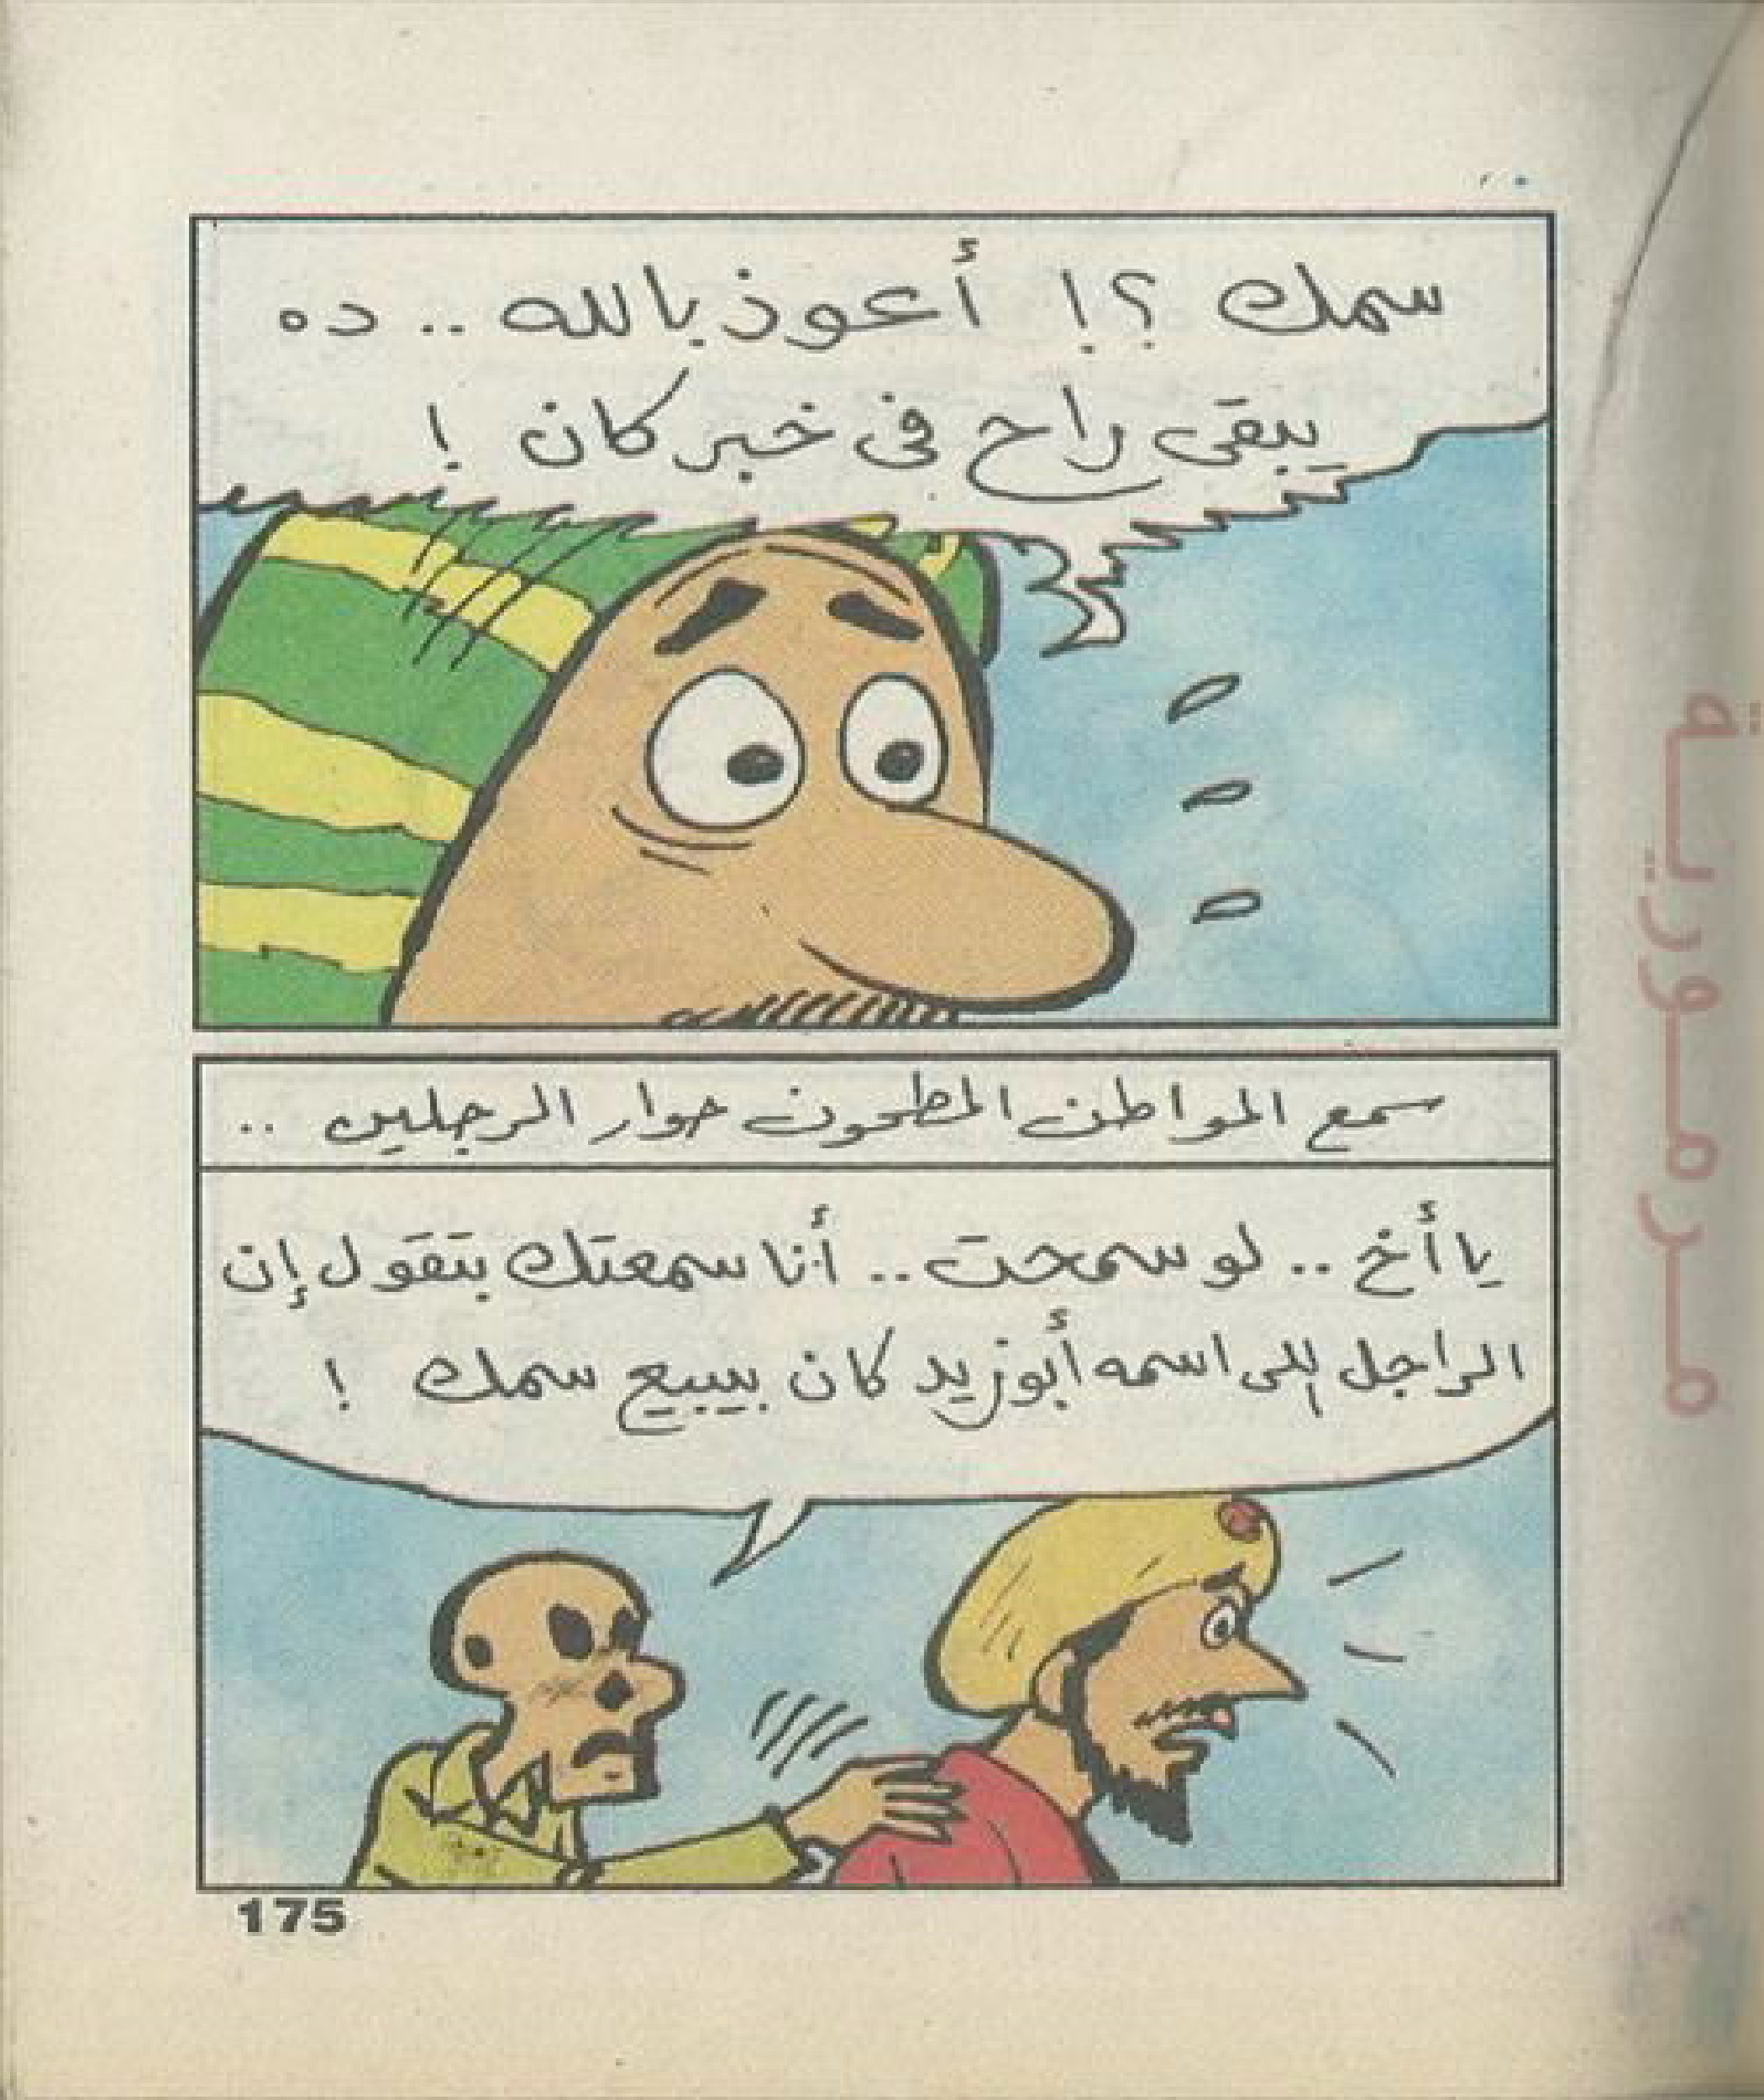 سمك ؟! أعوذ بالله .. ده
يبقى راح فى خبر كان !
سمع المواطن المطحون حوار الرجلين ..
يا أخ .. لو سمحت .. أنا سمعتك بتقول إن
الراجل اللى اسمه أبو زيد كان بيبيع سمك !
175
مرمورية